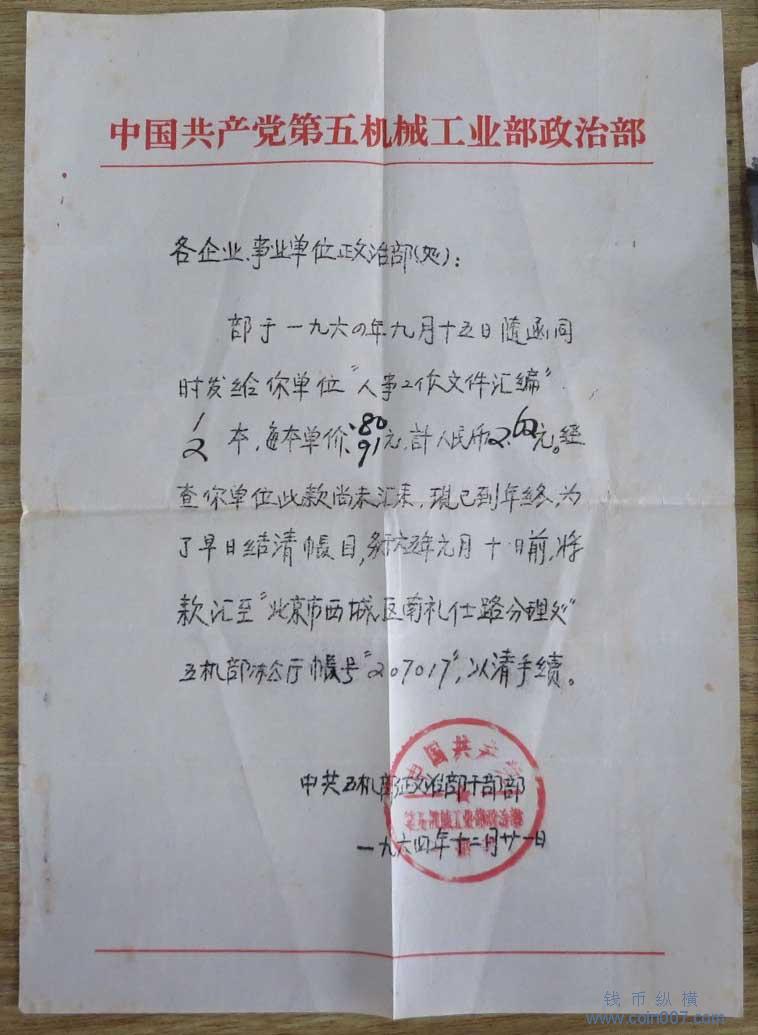 中国共产党第五机械工业部政治部
各企业、事业单位政治部(处)：
部于一九六四年九月十五日随函同
时发给你单位“人事工作文件汇编”
1 .80
2 本，每本单价.91元，計人民币2.62元。经
查你单位此款尚未汇来，現已到年终，为
了早日结清帳目，务于六五年元月十日前，将
款汇至“北京市西城区南礼仕路分理处”
五机部办公厅帳号“207017”，以清手续。
中共五机部政治部干部部
一九六四年十二月廿一日
中国共产党
第五机械工业部政治部
钱币纵横
www.coin007.com